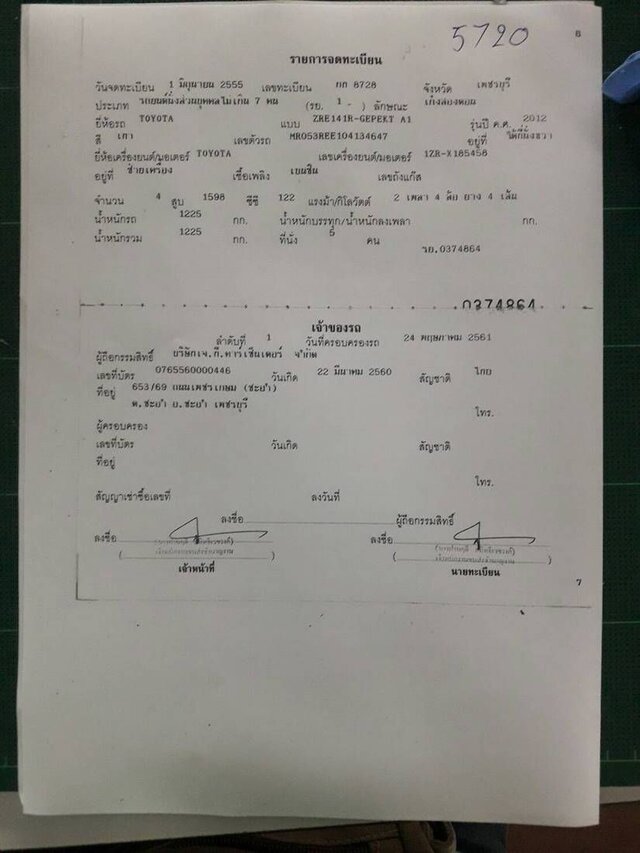 5720
8
รายการจดทะเบียน
วันจดทะเบียน 1 มิถุนายน 2555 เลขทะเบียน กก 8728 จังหวัด เพชรบุรี
ประเภท รถยนต์นั่งส่วนบุคคลไม่เกิน 7 คน (รย. 1 - ) ลักษณะ เก๋งสองตอน
ยี่ห้อรถ TOYOTA แบบ ZRE141R-GEPEKT A1 รุ่นปี ค.ศ. 2012
สี เทา เลขตัวรถ MR053REE104134647 อยู่ที่ ใต้ที่นั่งขวา
ยี่ห้อเครื่องยนต์/มอเตอร์ TOYOTA เลขเครื่องยนต์/มอเตอร์ 1ZR-X185458
อยู่ที่ ซ้ายเครื่อง เชื้อเพลิง เบนซิน เลขถังแก๊ส
จำนวน 4 สูบ 1598 ซีซี 122 แรงม้า/กิโลวัตต์ 2 เพลา 4 ล้อ ยาง 4 เส้น
น้ำหนักรถ 1225 กก. น้ำหนักบรรทุก/น้ำหนักลงเพลา กก.
น้ำหนักรวม 1225 กก. ที่นั่ง 5 คน
รย.0374864
0374864
เจ้าของรถ
ลำดับที่ 1 วันที่ครอบครองรถ 24 พฤษภาคม 2561
ผู้ถือกรรมสิทธิ์ บริษัทเจ.ที.คาร์เซ็นเตอร์ จำกัด
เลขที่บัตร 0765560000446 วันเกิด 22 มีนาคม 2560 สัญชาติ ไทย
ที่อยู่ 653/69 ถนนเพชรเกษม (ชะอำ)
ต.ชะอำ อ.ชะอำ เพชรบุรี โทร.
ผู้ครอบครอง
เลขที่บัตร วันเกิด สัญชาติ
ที่อยู่
โทร.
สัญญาเช่าซื้อเลขที่ ลงวันที่
ลงชื่อ ผู้ถือกรรมสิทธิ์
ลงชื่อ ลงชื่อ
เจ้าหน้าที่ นายทะเบียน
7